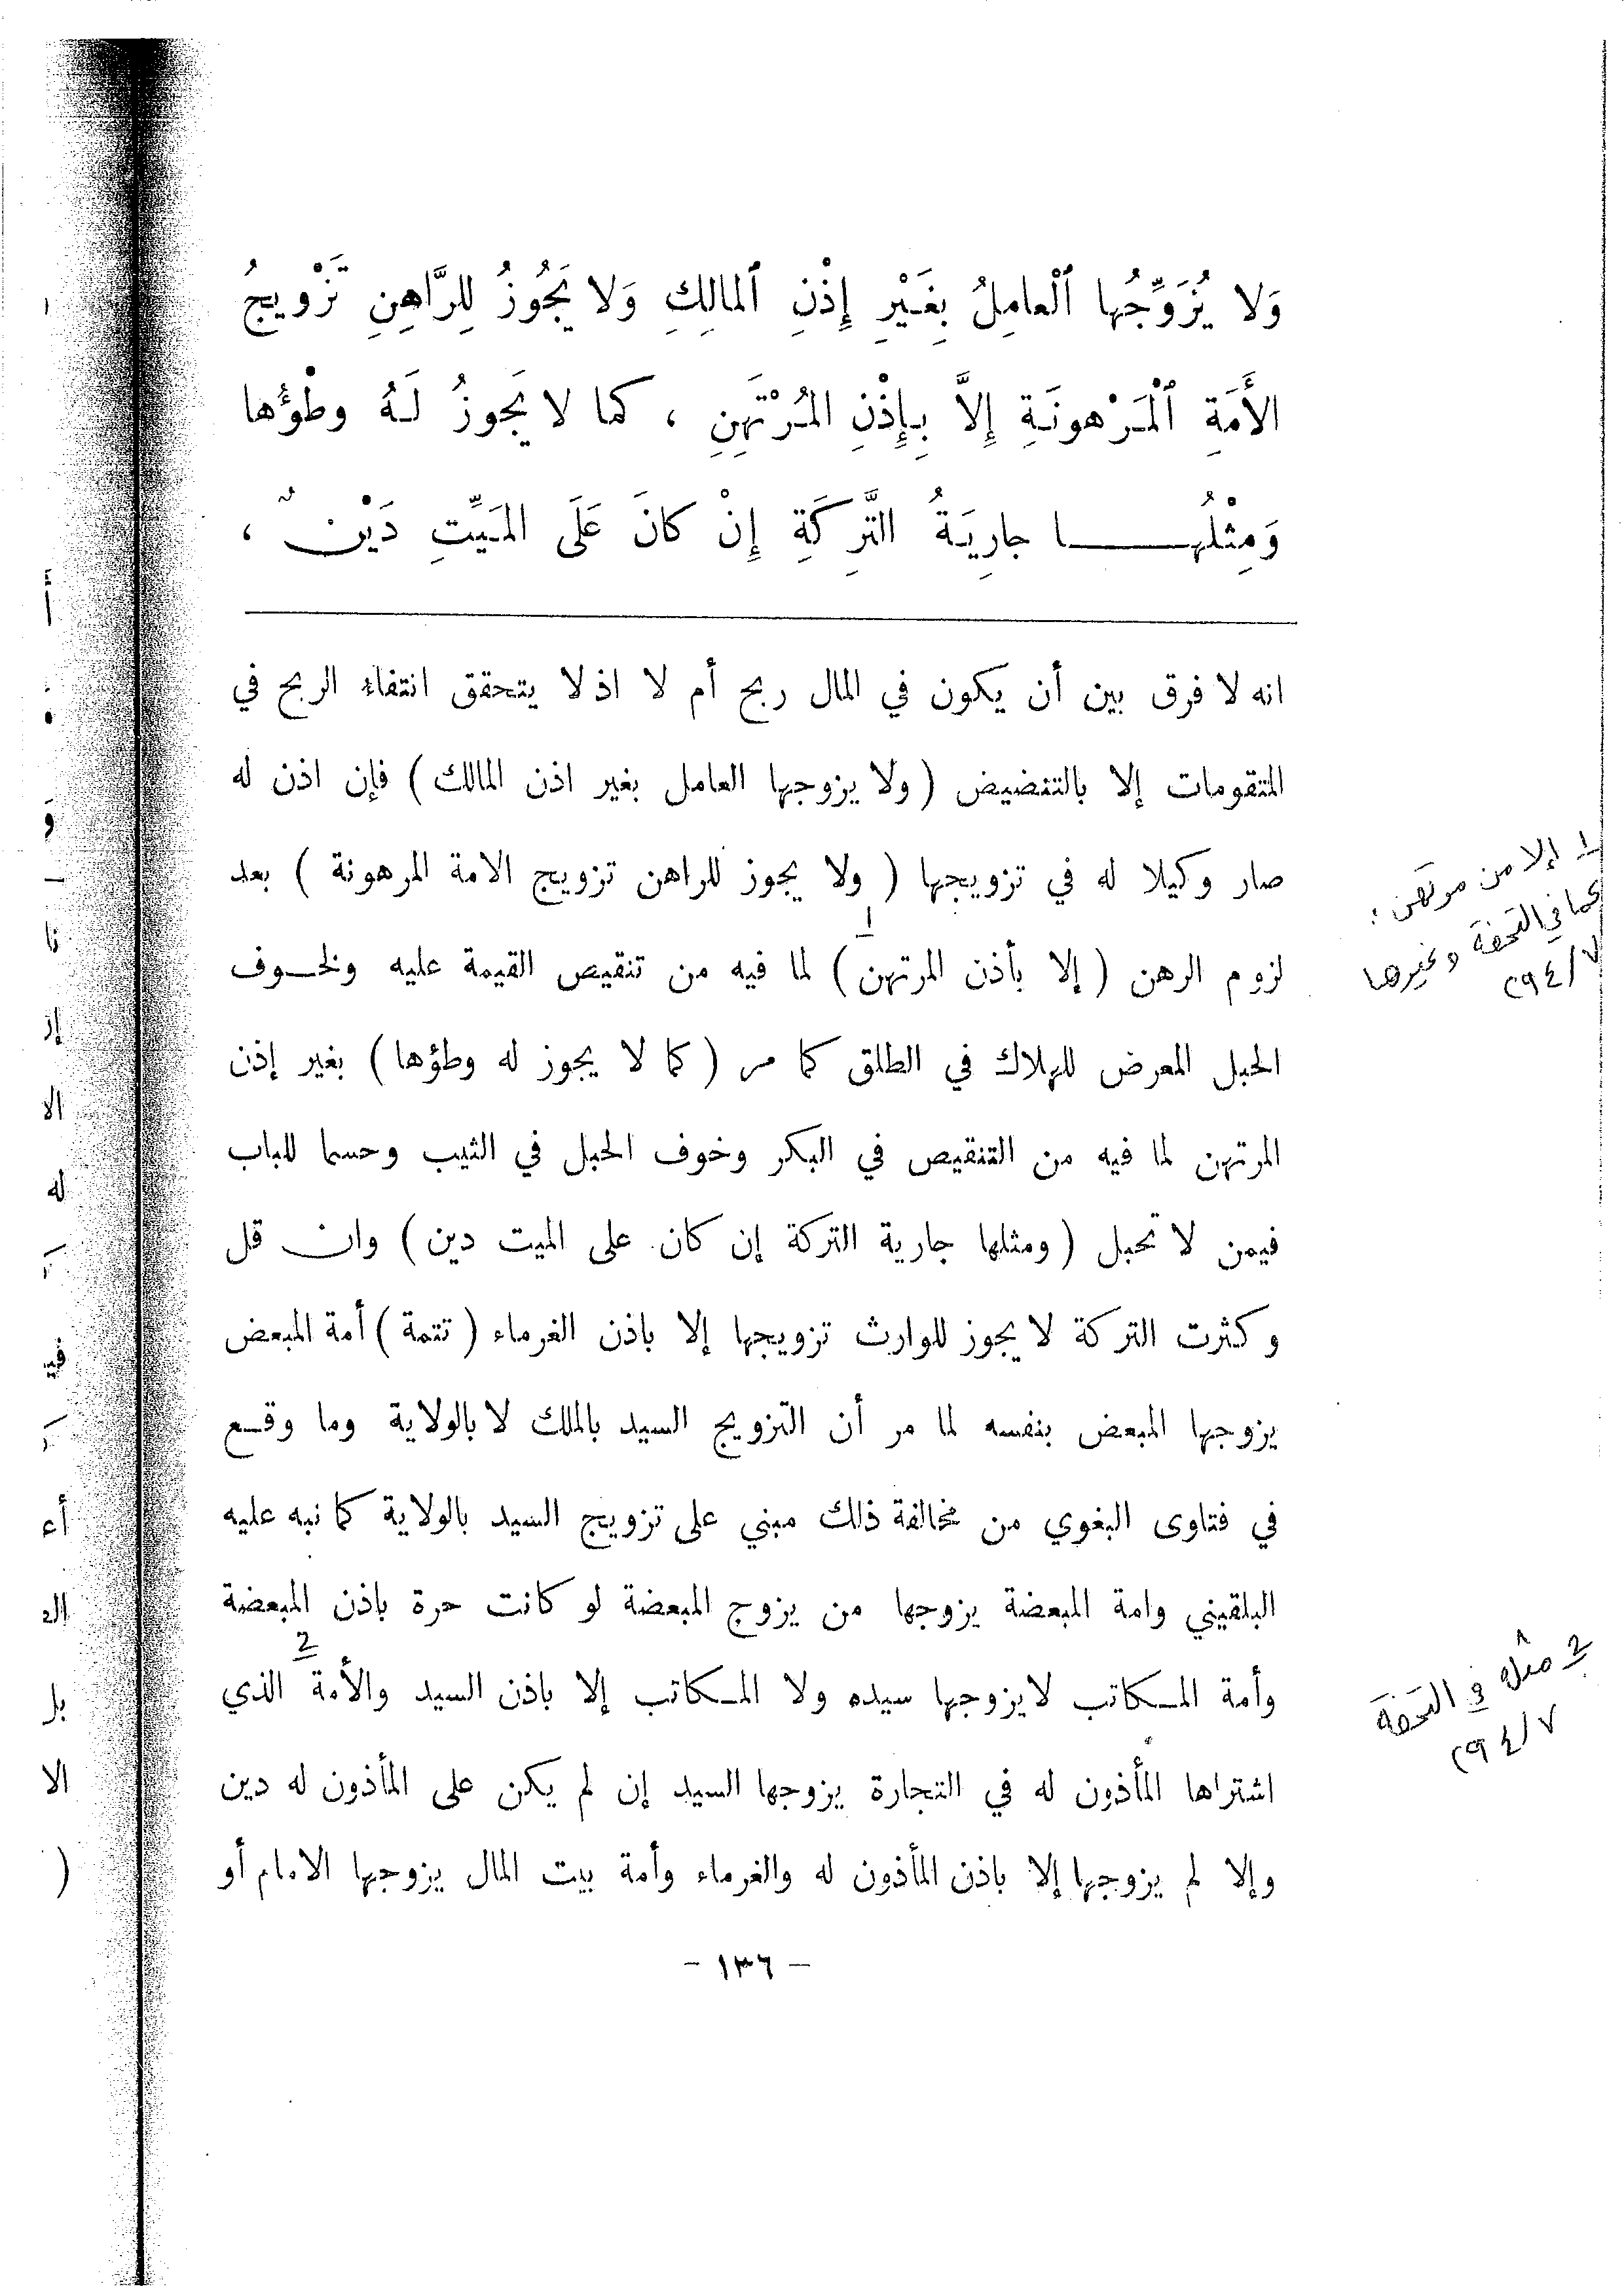 وَلا يُزَوِّجُها ٱلْعامِلُ بِغَيْرِ إِذْنِ ٱلمالِكِ وَلا يَجُوزُ لِلرَّاهِنِ تَزْويجُ
الأَمَةِ ٱلْمَرْهونَةِ إِلاَّ بِإِذْنِ المُرْتَهِنِ ، كما لا يَجوزُ لَهُ وطْؤُها
وَمِثْلُها جارِيَةُ التَّرِكَةِ إِنْ كانَ عَلَى المَيِّتِ دَيْنٌ ،
انه لا فرق بين أن يكون في المال ربح أم لا اذ لا يتحقق انتفاء الربح في
المتقومات إلا بالتنضيض ( ولا يزوجها العامل بغير اذن المالك ) فإن اذن له
صار وكيلا له في تزويجها ( ولا يجوز للراهن تزويج الامة المرهونة ) بعد
لزوم الرهن ( إلا بأذن المرتهن ) لما فيه من تنقيص القيمة عليه ولخوف
الحبل المعرض للهلاك في الطلق كما مر ( كما لا يجوز له وطؤها ) بغير إذن
المرتهن لما فيه من التنقيص في البكر وخوف الحبل في الثيب وحسما للباب
فيمن لا تحبل ( ومثلها جارية التركة إن كان على الميت دين ) وان قل
وكثرت التركة لا يجوز للوارث تزويجها إلا باذن الغرماء ( تتمة ) أمة المبعض
يزوجها المبعض بنفسه لما مر أن التزويج السيد بالملك لا بالولاية وما وقع
في فتاوى البغوي من مخالفة ذلك مبني على تزويج السيد بالولاية كما نبه عليه
البلقيني وامة المبعضة يزوجها من يزوج المبعضة لو كانت حرة باذن المبعضة
وأمة المكاتب لايزوجها سيده ولا المكاتب إلا باذن السيد والأمة الذي
اشتراها المأذون له في التجارة يزوجها السيد إن لم يكن على المأذون له دين
وإلا لم يزوجها إلا باذن المأذون له والغرماء وأمة بيت المال يزوجها الامام أو
- ١٣٦ -
1 إلا من مرتهن :
كما في التحفة وغيرها
٧/٢٩٤
2 مثله في التحفة
٧/٢٩٤